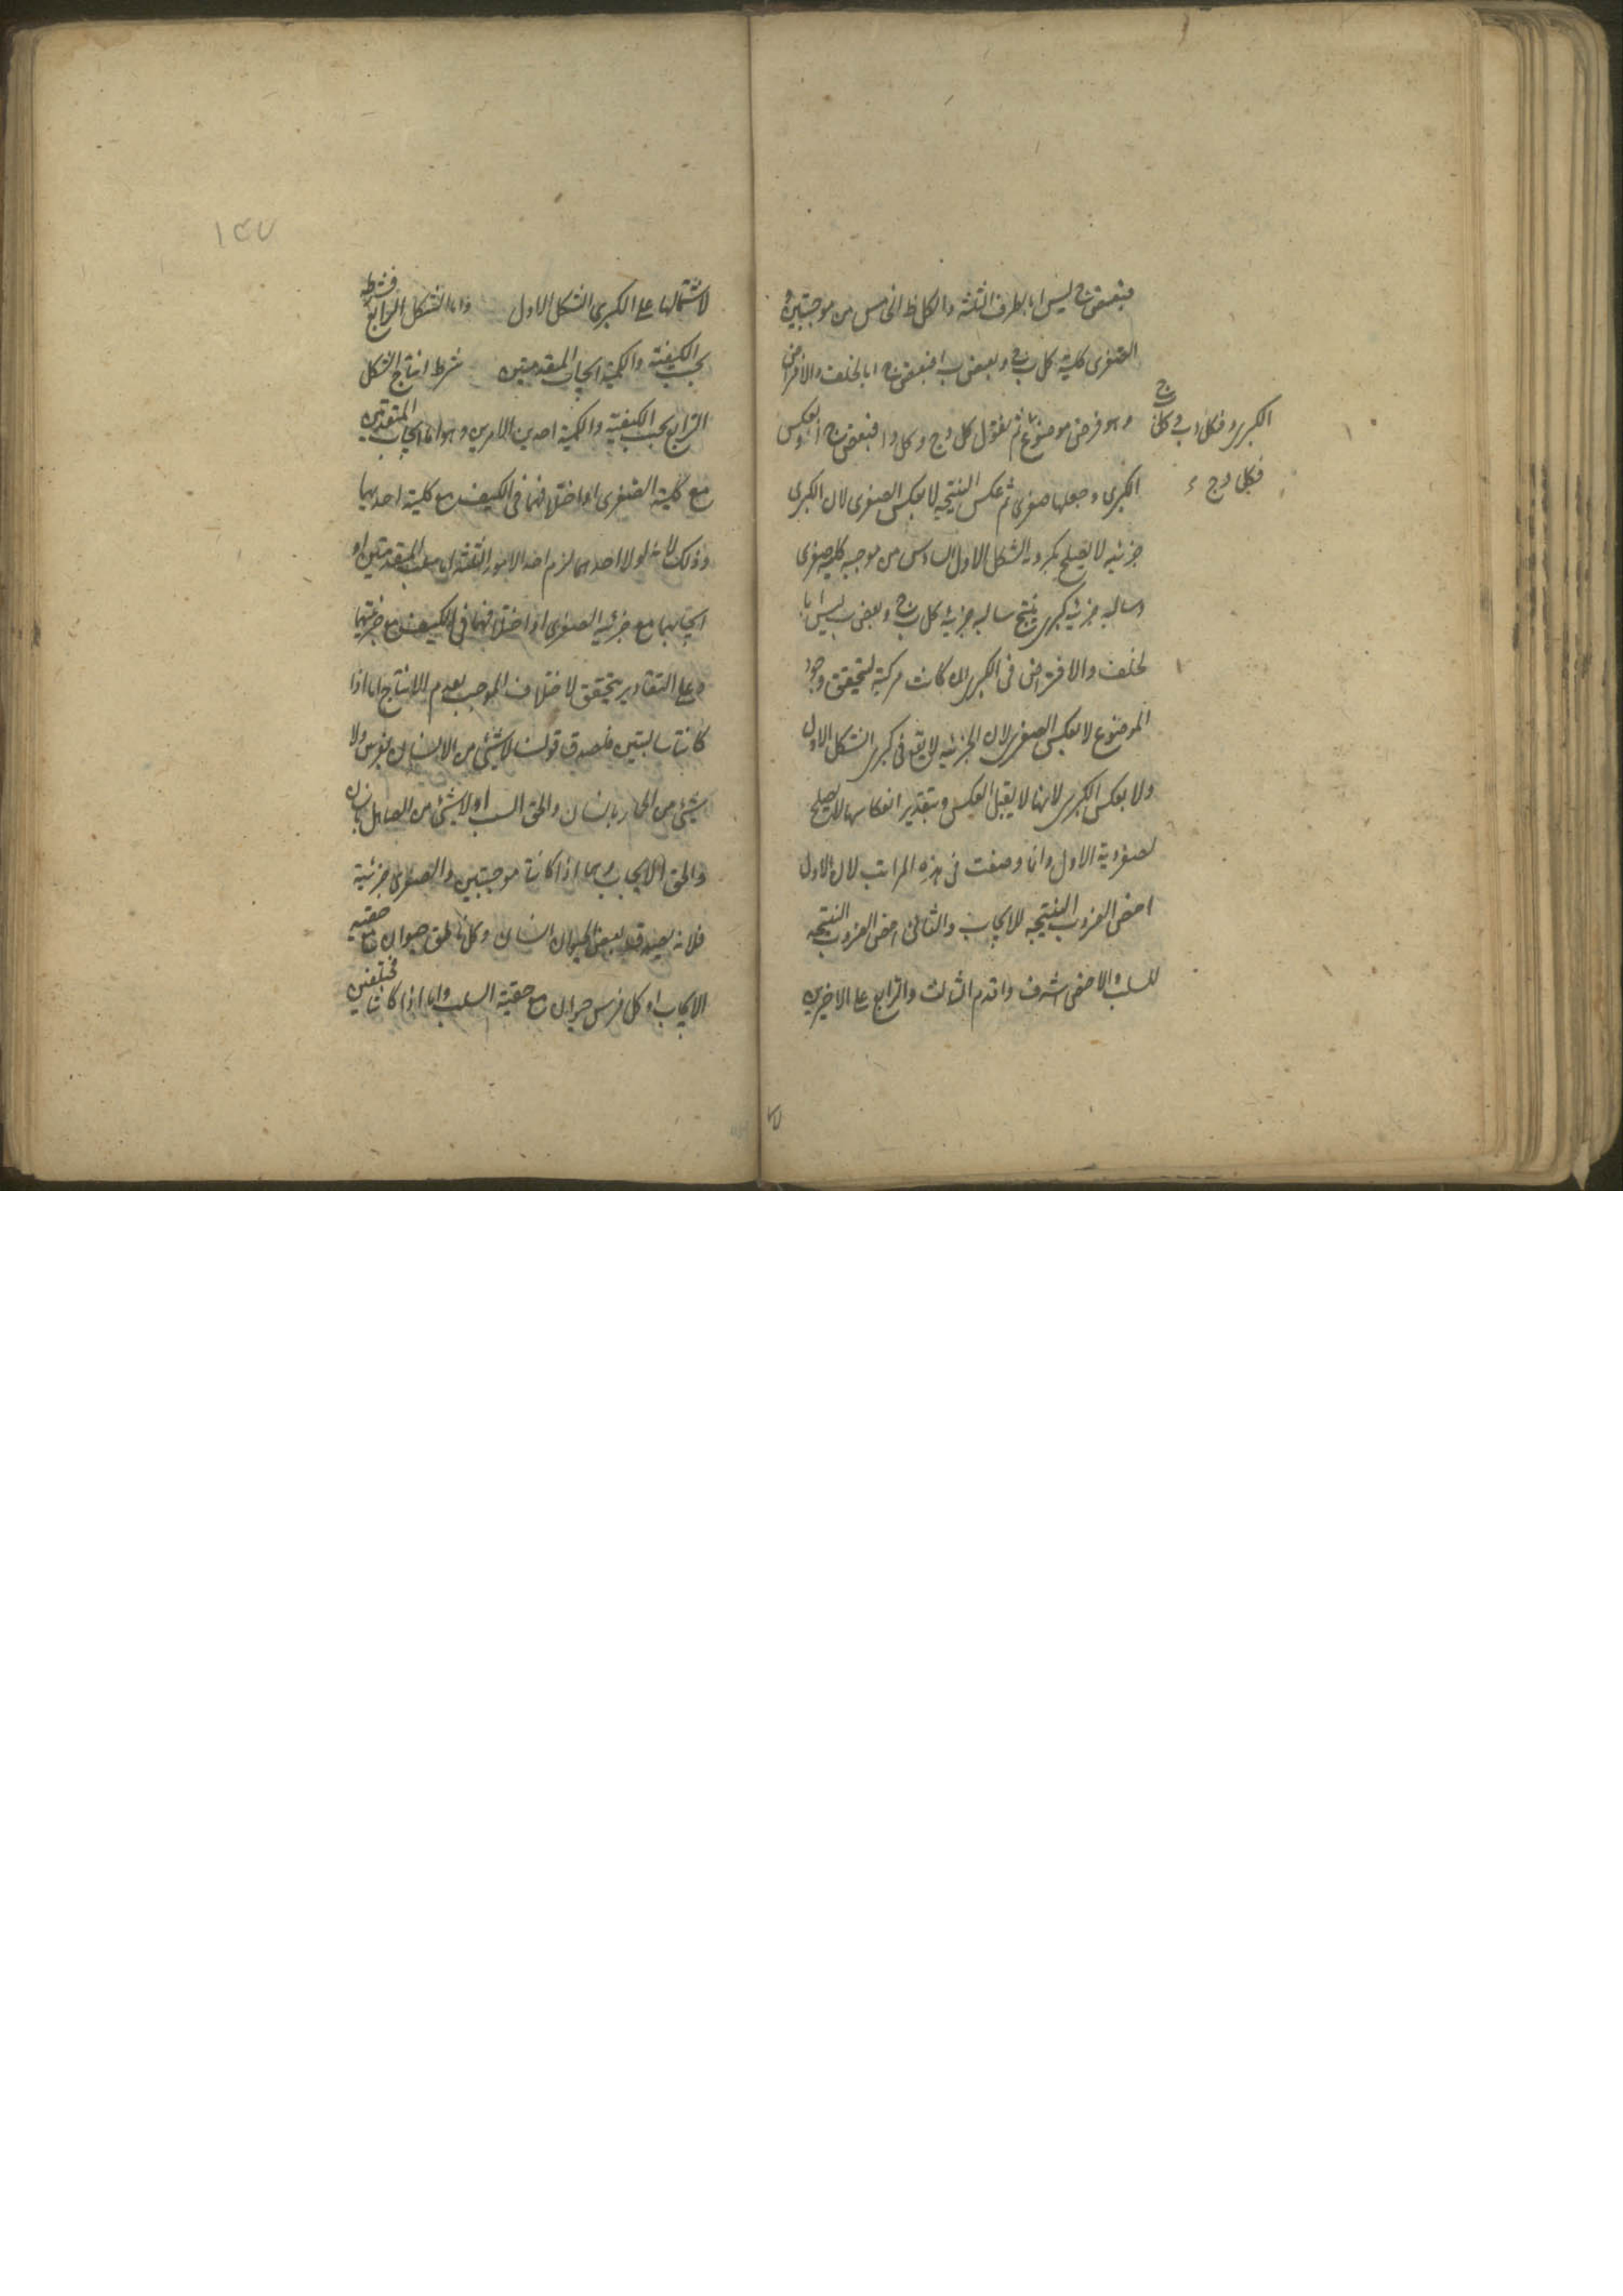 فبعض ج ليس ا بالطرق الثلثة والكل ظ الخامس من موجبتين و
الصغرى كلية كل ب ج وبعض ب ا فبعض ج ا بالخلف والافتراض
وهو فرض موضوع ثم نقول كل د ج وكل د ا فبعض ج ا وبعكس
الكبرى وجعلها صغرى ثم عكس النتيجه لا بعكس الصغرى لان الكبرى
جزئيه لا تصلح لكبروية الشكل الاول السادس من موجبه كليه صغرى
وسالبه جزئيه كبرى ينتج سالبه جزئيه كل ب ج وبعض ب ليس ا با
لخلف والافتراض فى الكبرى ان كانت مركبة ليتحقق وجود
الموضوع لا بعكس الصغرى لان الجزئيه لا يقع فى كبرى الشكل الاول
ولا بعكس الكبرى لانها لا يقبل العكس وبتقدير انعكاسها لا يصلح
لصغروية الاول وانما وضعت فى هذه المراتب لان الاول
اخص الضروب المنتجه للايجاب والثانى اخص الضروب المنتجه
للسلب والاخص اشرف وقدم الثالث والرابع على الاخيرين
الكبرى و فكل د ب و كل ب ج
فكل د ج
١٤٧
لاشتمالها على الكبرى الشكل الاول واما الشكل الرابع فشرطه
بحسب الكيفية والكمية ايجاب المقدمتين شرط انتاج الشكل
الرابع بحسب الكيفية والكمية احد الامرين وهو اما ايجاب المقدمتين
مع كلية الصغرى او اختلافهما فى الكيف مع كلية احديهما
وذلك لانه لولا احدهما لزم احد الامور الثلثة اما سلب المقدمتين او
ايجابهما مع جزئيه الصغرى او اختلافهما فى الكيف مع جزئيتهما
وعلى التقادير يتحقق الاختلاف الموجب لعدم الانتاج اما اذا
كانتا سالبتين فلصدق قولنا لا شئ من الانسان بفرس ولا
شئ من الحمار بانسان والحق السلب او لا شئ من الصاهل بانسان
والحق الايجاب واما اذا كانتا موجبتين والصغرى جزئية
فلانه يصدق بعض الحيوان انسان وكل ناطق حيوان مع حقية
الايجاب او كل فرس حيوان مع حقية السلب واما اذا كانتا مختلفتين